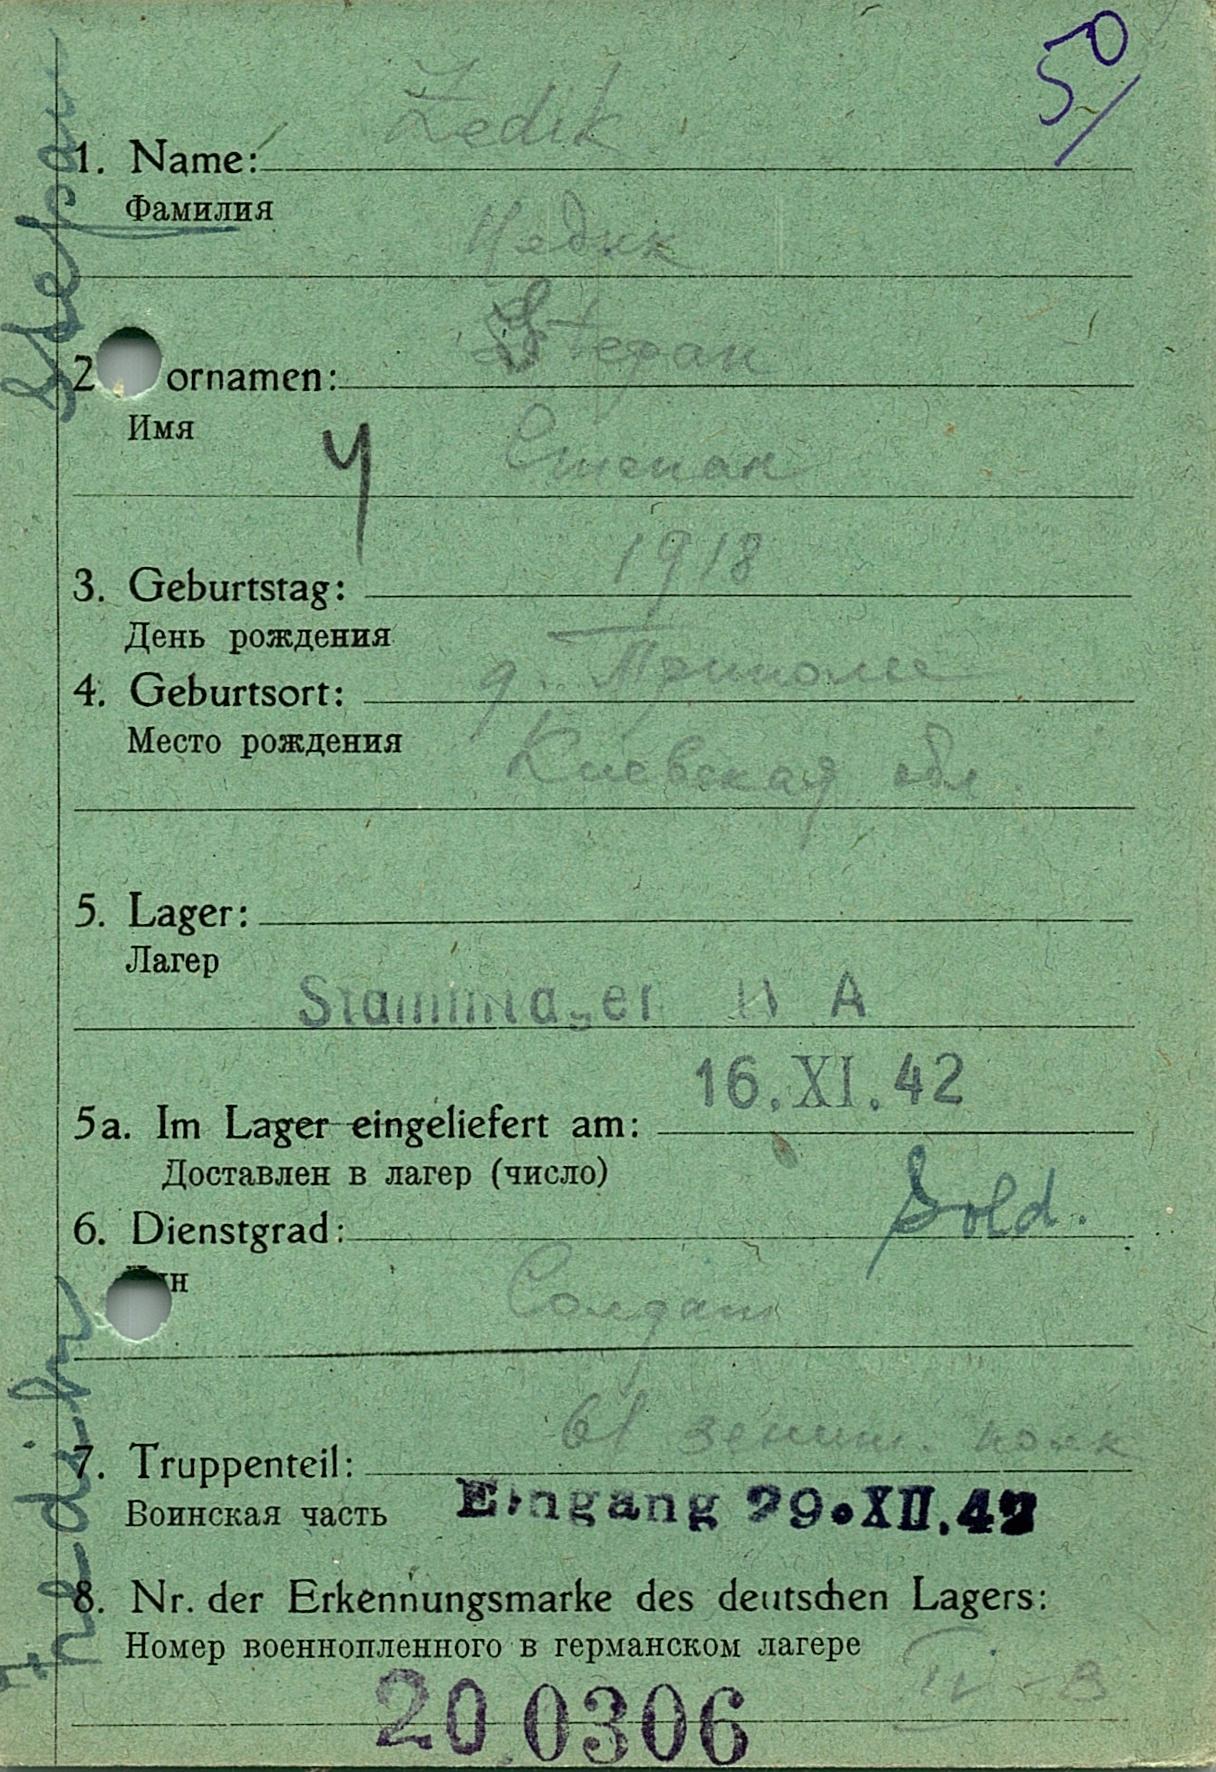 50/
Zedik
1. Name:
Фамилия
Цедик
Stepan
2 ornamen:
Имя
Степан
1918
3. Geburtstag:
День рождения
д. Триполье
4. Geburtsort:
Место рождения
Киевская обл
5. Lager:
Лагер
Stammlager A
16.XI.42
5a. Im Lager eingeliefert am:
Доставлен в лагер (число)
Sold.
6. Dienstgrad:
ин
Солдат
61 зенит. полк
7. Truppenteil:
Воинская часть
Eingang 29.XII.42
8. Nr. der Erkennungsmarke des deutschen Lagers:
Номер военнопленного в германском лагере
IV-B
200306